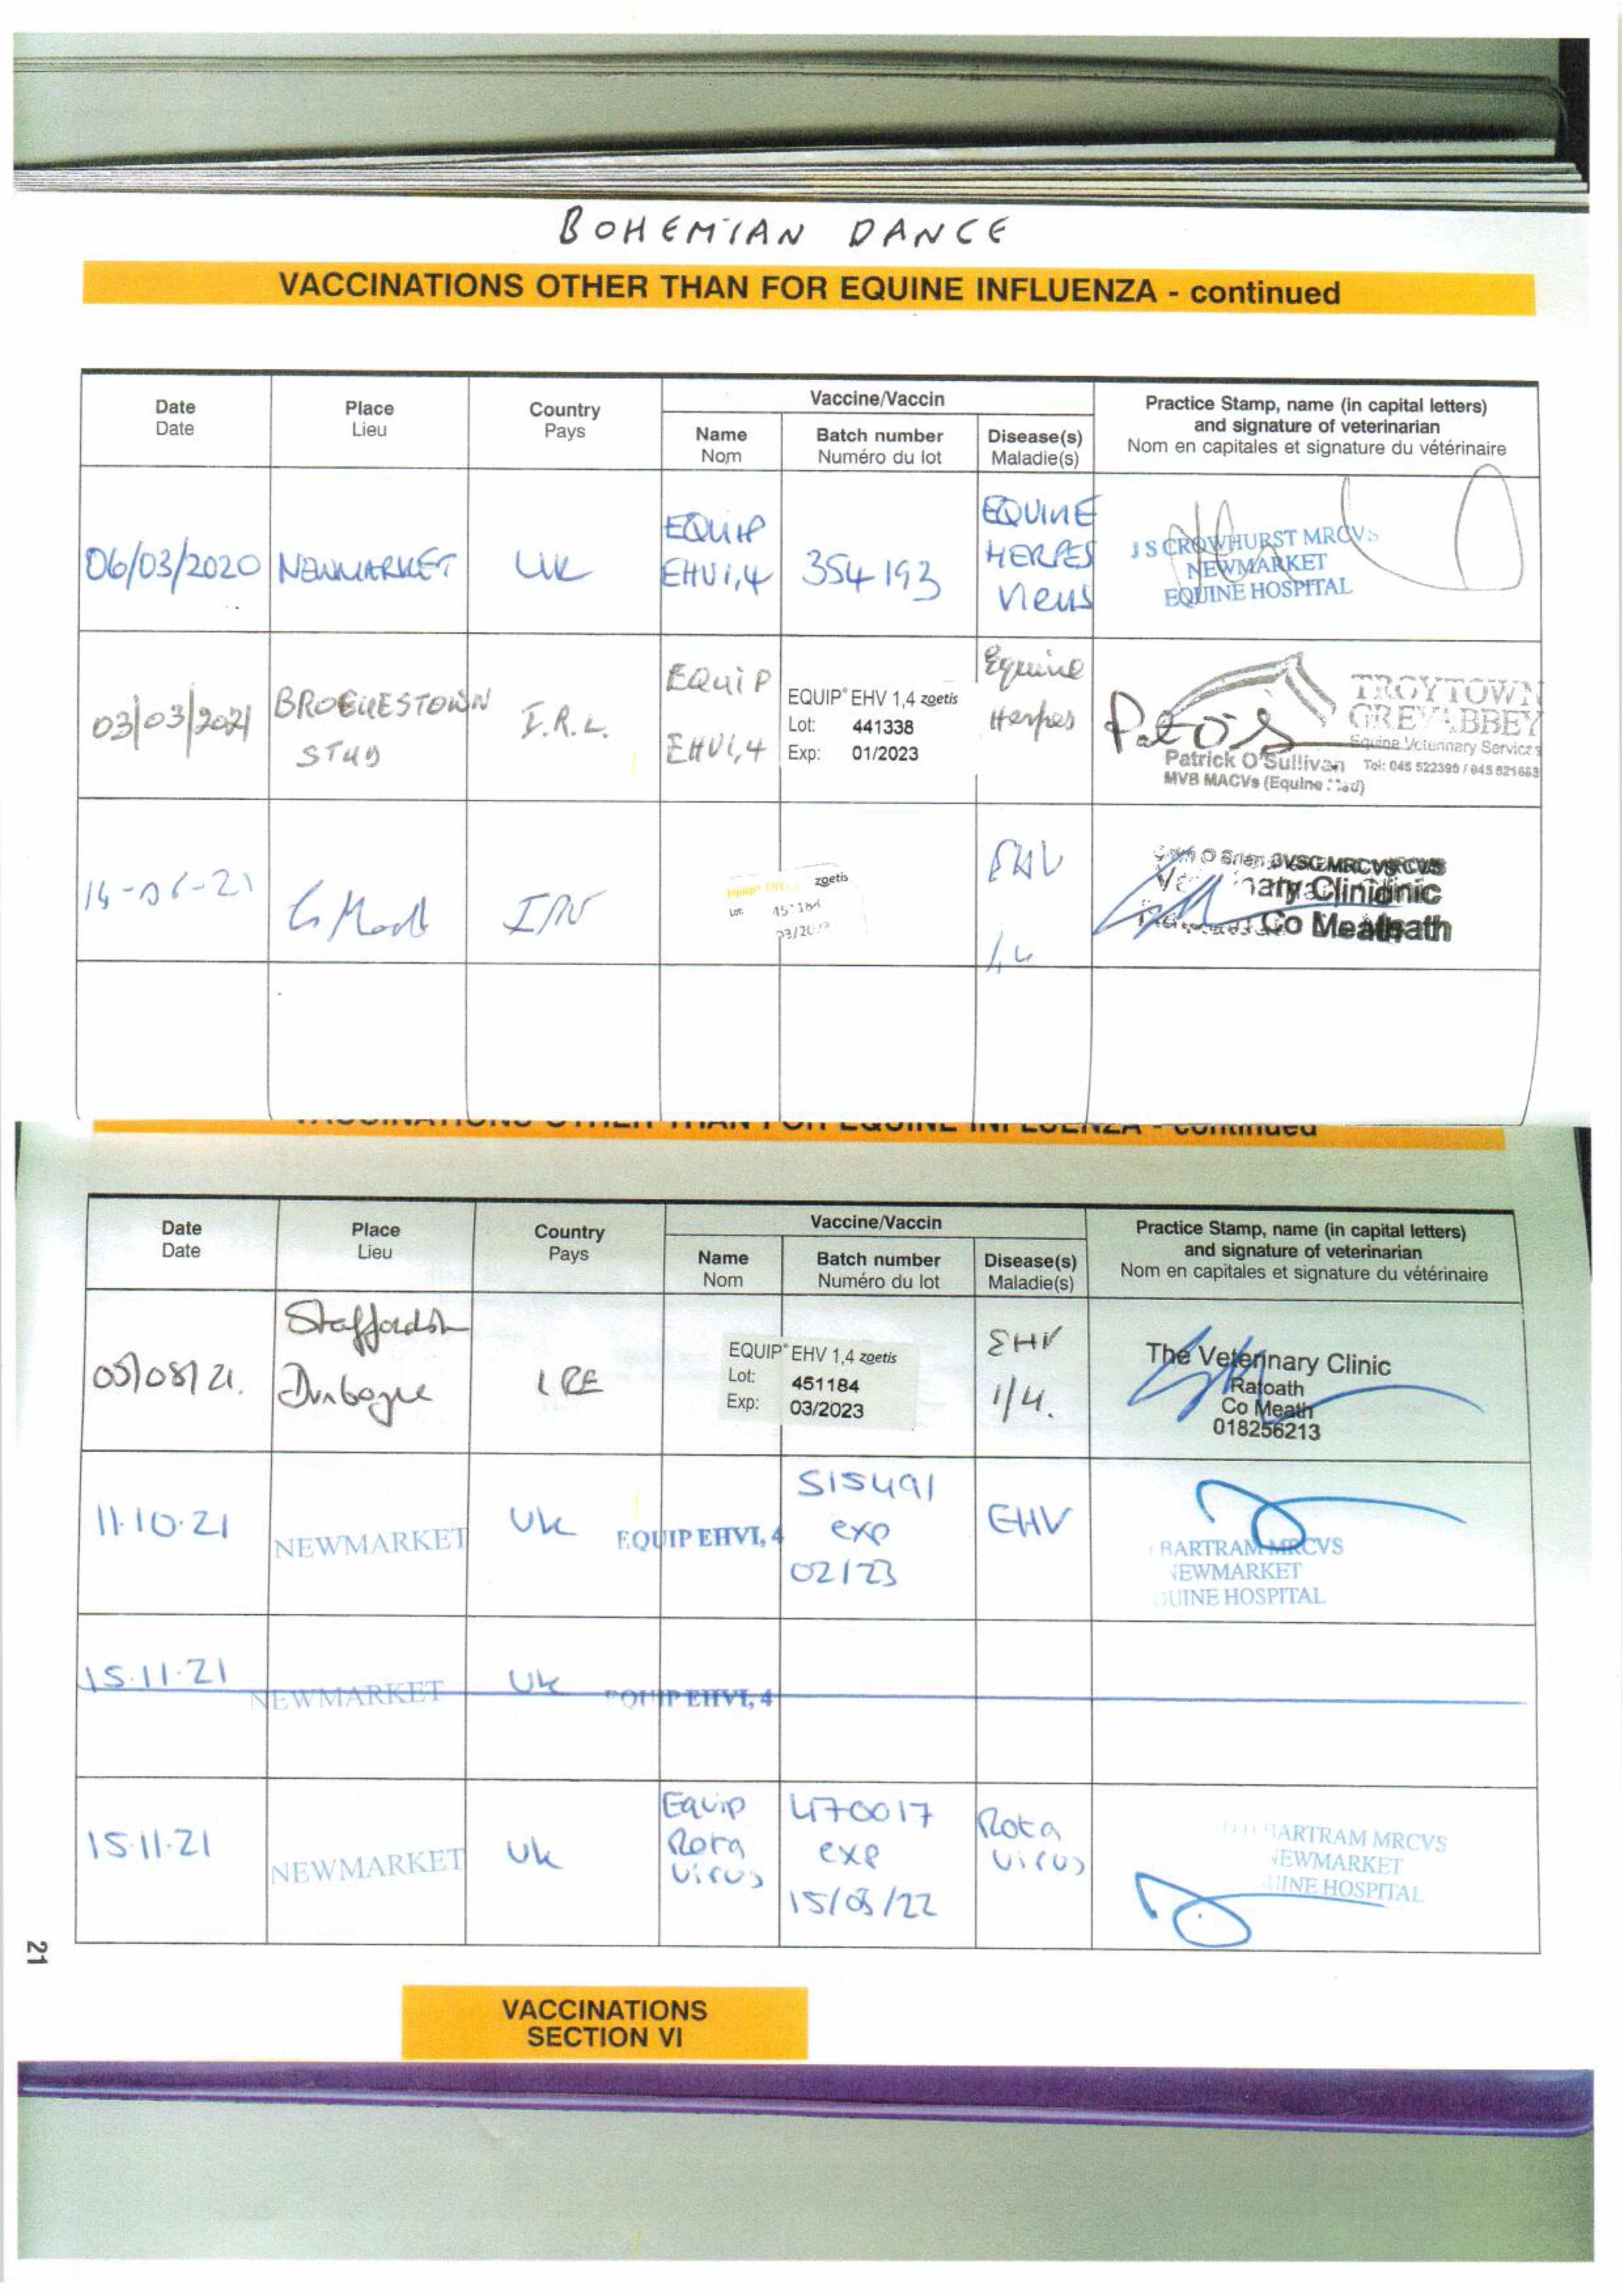 BOHEMIAN DANCE
VACCINATIONS OTHER THAN FOR EQUINE INFLUENZA - continued
Date
Date
Place
Lieu
Country
Pays
Vaccine/Vaccin
Name
Nom
Batch number
Numéro du lot
Disease(s)
Maladie(s)
Practice Stamp, name (in capital letters)
and signature of veterinarian
Nom en capitales et signature du vétérinaire
06/03/2020
NEWMARKET
UK
EQUIP
EHV1,4
354193
EQUINE
HERPES
VIRUS
J S CROWHURST MRCVS
NEWMARKET
EQUINE HOSPITAL
03/03/2021
BROGUESTOWN
STUD
I.R.L.
EQUIP
EHV1,4
EQUIP® EHV 1,4 zoetis
Lot: 441338
Exp: 01/2023
Equine
Herpes
TROYTOWN
GREYABBEY
Equine Veterinary Services
Patrick O'Sullivan Tel: 045 522395 / 045 521663
MVB MACVs (Equine Med)
14-06-21
zoetis
Lot:
EHV
1,4
MRCVS
Clinic
Co Meath
VACCINATIONS OTHER THAN FOR EQUINE INFLUENZA - continued
Date
Date
Place
Lieu
Country
Pays
Vaccine/Vaccin
Name
Nom
Batch number
Numéro du lot
Disease(s)
Maladie(s)
Practice Stamp, name (in capital letters)
and signature of veterinarian
Nom en capitales et signature du vétérinaire
05/08/21.
IRE
EQUIP® EHV 1,4 zoetis
Lot: 451184
Exp: 03/2023
EHV
1/4.
The Veterinary Clinic
Ratoath
Co Meath
018256213
11.10.21
NEWMARKET
UK
EQUIP EHV1, 4
515491
exp
02/23
EHV
BARTRAM MRCVS
NEWMARKET
UINE HOSPITAL
15.11.21
NEWMARKET
UK
EQUIP EHV1, 4
15.11.21
NEWMARKET
UK
Equip
Rota
Virus
470017
exp
15/05/22
Rota
Virus
BARTRAM MRCVS
NEWMARKET
UINE HOSPITAL
21
VACCINATIONS
SECTION VI